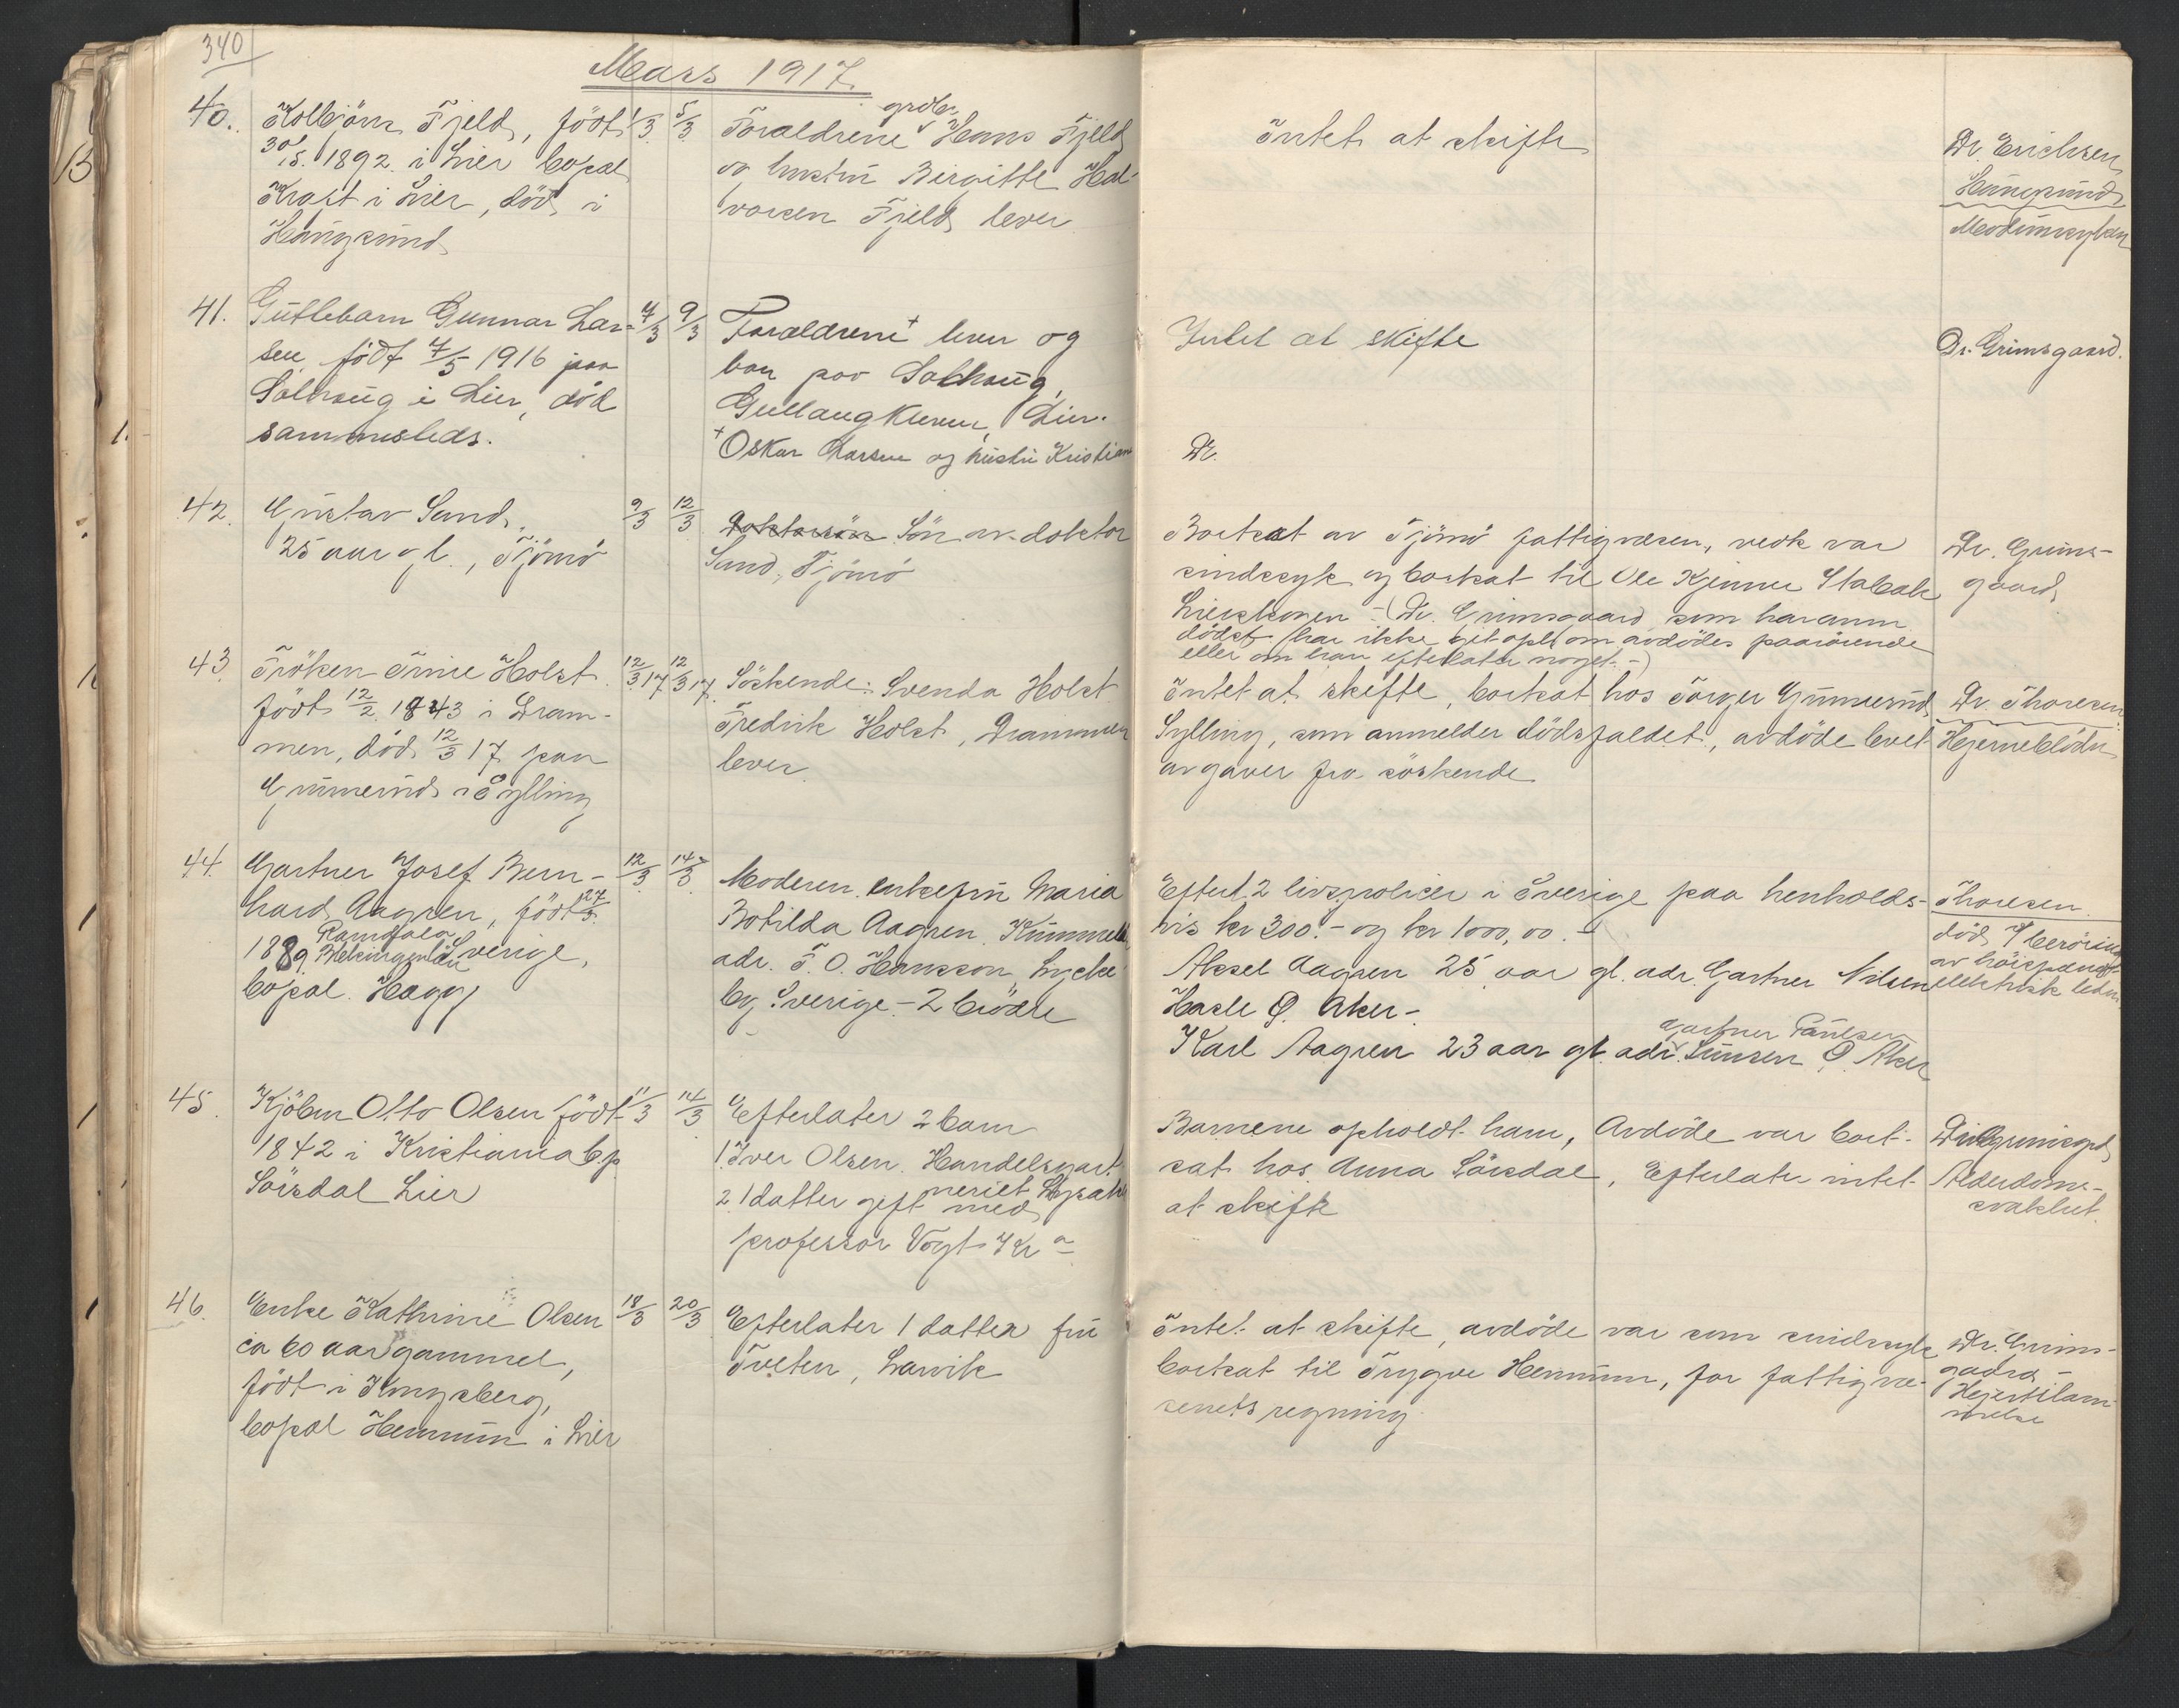 340
Mars 1917.
40. Kolbjörn Fjeld, född 1/3 5/3
30/5. 1892. i Lier bopal
Krast i Lier, död i
Haugsund
grdbr.
Foraldrene Hans Fjeld
og hustru Birgitte Hal-
vorsen Fjeld lever
Intet at skifte
Dr. Erichsen
Haugsund
41. Guttebarn Gunnar Lar- 4/3 9/3
sen födt 4/5 1916 paa
Solhaug i Lier, död
sammesteds.
Forældrene + lever og
bor paa Solhaug,
Gullaugkleven, Lier.
+ Oskar Larsen og hustru Kristiane
Intet at skifte
Dr. Grimsgaard.
Dr.
42. Gustav Sand, 9/3 12/3
25 aar gl., Tjömö
Doktorsön Sön av doktor
Sand, Tjömö
Bortsat av Tjömö fattigvæsen, vedk var
sindssyk og bortsat til Ole Kjenner Stabæk
Lierskogen - (Dr. Grimsgaard som har anm
dödsf. har ikke git opl. om avdödes paarörende
eller om han efterlater noget. -)
Dr. Grims-
gaard
43. Fröken Trine Holst. 12/3 17. 12/3 17.
född 12/2 1843 i Dram-
men, död 12/3 17 paa
Gunnerud i Sylling
Söskende: Svenda Holst
Fredrik Holst, Drammen
lever.
Intet at skifte, bortsat hos Torger Gunnerud
Sylling, som anmelder dödsfaldet, avdöde levet
av gaver fra söskende
Dr Thoresen
Hjerneblödn
44. Gartner Josef Bern- 12/3 14/3
hard Aagren, födt 27/3.
Ramdala
1889. Blekingelän Sverige,
bopal. Hagg
Moderen enkefru Maria
Botilda Aagren. Kummeln
adr. F. O. Hansson, Lycke
by Sverige. - 2 brödre
Efterl. 2 livspolicer i Sverige paa henholds-
vis kr 300.- og kr 1000,00. -
Aksel Aagren 25 aar gl. adr. Gartner Nilsen
Hasle Ö. Aker -
gartner Paulsen
Karl Aagren 23 aar gl. adr. Linsen Ö. Aker
Thoresen.
död v/ beröring
av höispændt
elektrisk ledn.
45. Kjöbm Otto Olsen födt 11/3 14/3
1842 i Kristiania b.p
Sörsdal Lier
Efterlater 2 barn
1. Iver Olsen. Handelsgart
neriet Lysaker
2. 1 datter gift med
professor Vogt Kr a
Barnene opholdt ham, Avdöde var bort-
sat hos Anna Sörsdal, Efterlater intet
at skifte
Alderdoms-
svakhet.
46. Enke Kathrine Olsen 18/3 20/3
ca 60 aar gammel,
födt i Kongsberg,
bopal Hennum i Lier
Efterlater 1 datter fru
Tveten, Larvik
Intet at skifte, avdöde var som sindssyk
bortsat til Trygve Hennum, for fattigvæ-
senets regning
Dr. Grims-
gaard -
Hjertelam-
melse